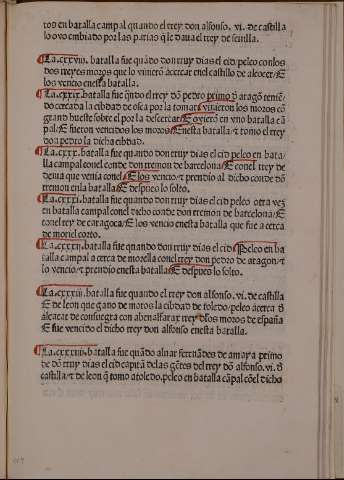 ros en batalla campal quando el rrey don alfonso. vi. de castilla
lo ovo embiado por las parias q̃ le daua el rrey de seuilla.
La.cxxviii. batalla fue quãdo don rruy dias el cid peleo con los
dos rreyes moros que lo vinierõ a cercar en el castillo de alcocer/ E
los vencio enesta batalla.
La.cxxix.batalla fue q̃ndo el rrey dõ pedro primo đ aragõ teniẽ
do cercada la cibdad de osca por la tomar/ vinieron los moros cõ
grand hueste sobre el por la descercar/ E ovierõ vn vno batalla cã
pal/ E fueron vencidos los moros/ Enesta batalla/ ⁊ tomo el rrey
don pedro la dicha cibdad.
La.cxxx.batalla fue quando don rruy dias el cid peleo en bata/
lla campal conel conde don tremon de barcelona/ E conel rrey de
denia que venia conel/ E los vencio/ ⁊ prendio al dicho conde dõ
tremon enla batalla/ E despues lo solto.
La.cxxxi.batalla fue quando don rruy dias el cid peleo otra vez
en batalla campal conel dicho conde don tremon de barcelona/ E
conel rrey de caragoça/ E los vencio enesta batalla que fue a cerca
de moriel corto.
La.cxxxii.batalla fue quando don rruy dias el cid/ Peleo en ba
talla campal a cerca de morella conel rrey don pedro de aragon/ ⁊
lo vencio/ ⁊ prendio enesta batalla/ E despues lo solto.
La.cxxxiii.batalla fue quando el rrey don alfonso. vi. de castilla
E de leon que gano de moros la cibdad de toledo/ peleo acerca đ
alcaçar de consuegra con abenalfarax rrey đlos moros de españa
E fue vencido el dicho rrey don alfonso enesta batalla.
La.cxxxiiii.batalla fue quãdo aluar ferrnãdes de amaya primo
de dõ rruy dias el cid capitã delas gẽtes del rrey dõ alfonso. vi. đ
castilla/ ⁊ de leon q̃ tomo a toledo, peleo en batalla cãpal cõel dicho